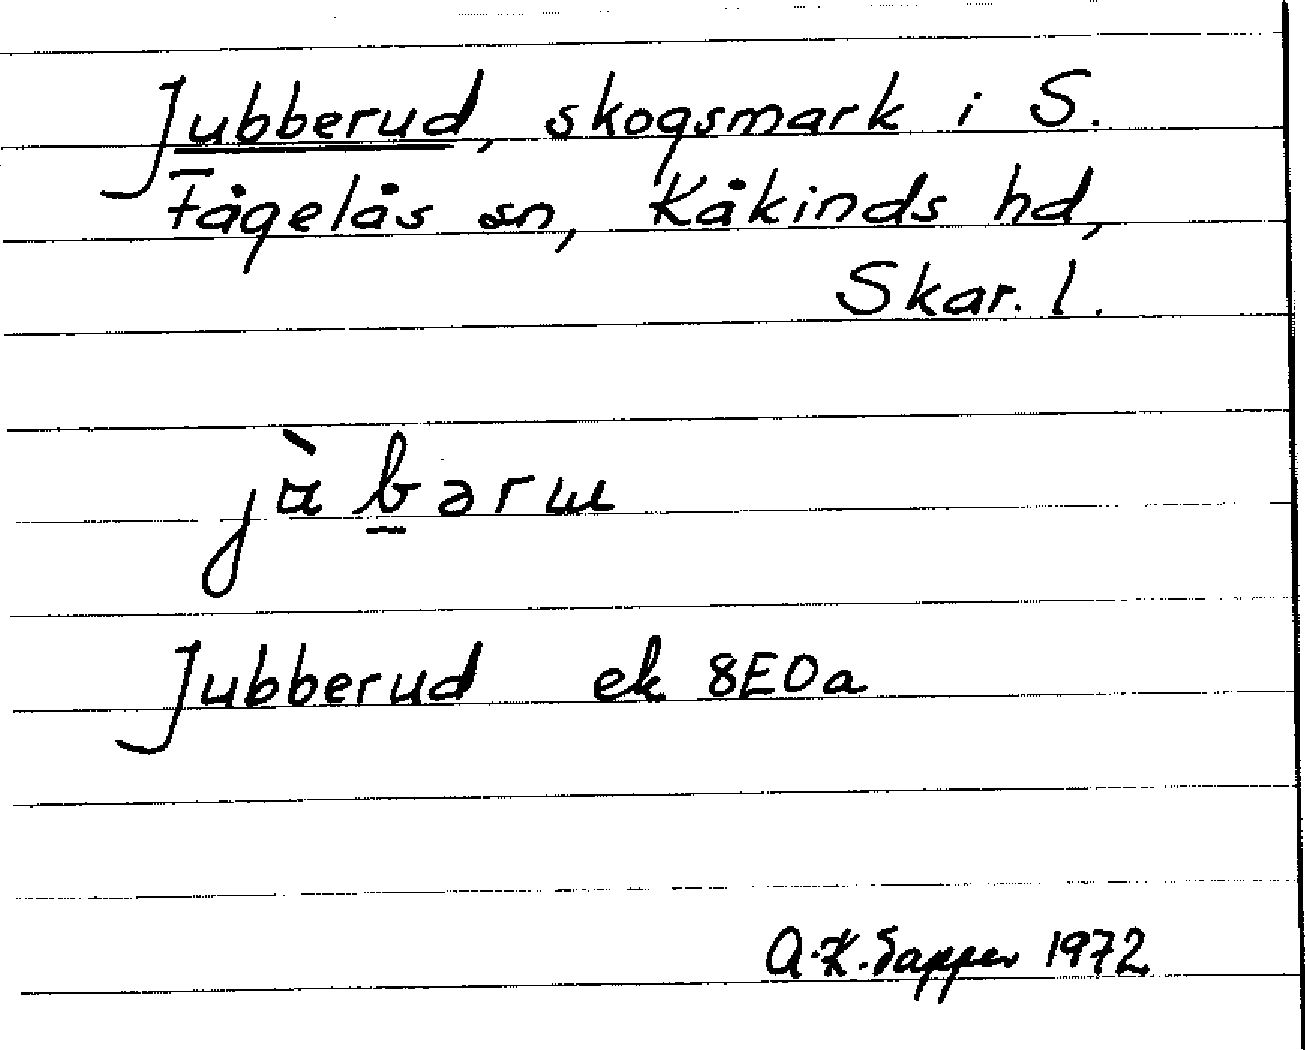 Jubberud, skogsmark i S.
Fågelås sn, Kåkinds hd,
Skar. l.
Jubberud ek 8E0a
A.K. Sapper 1972